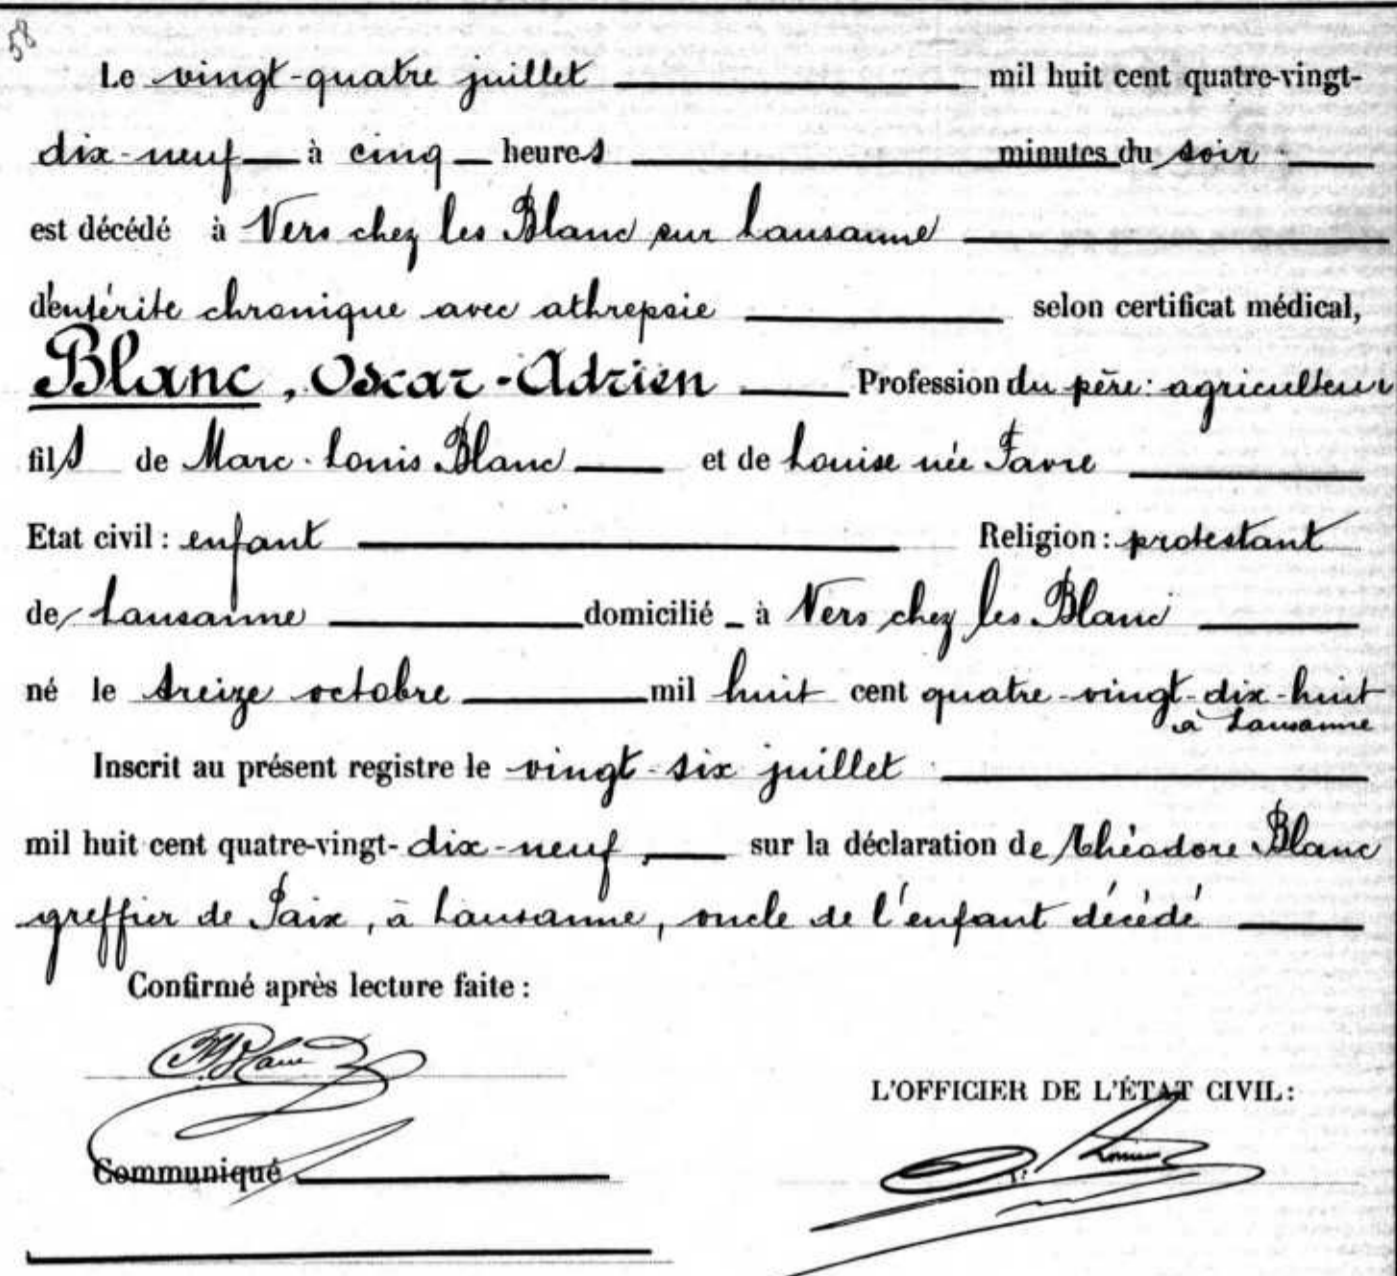 58
Le vingt-quatre juillet mil huit cent quatre-vingt-
dix-neuf à cinq heures minutes du soir
est décédé à Vers chez les Blanc sur Lausanne
d'entérite chronique avec athrepsie selon certificat médical,
Blanc, Oscar-Adrien Profession du père: agriculteur
fils de Marc-Louis Blanc et de Louise née Favre
Etat civil: enfant Religion: protestant
de Lausanne domicilié à Vers chez les Blanc
né le treize octobre mil huit cent quatre-vingt-dix-huit
à Lausanne
Inscrit au présent registre le vingt-six juillet
mil huit cent quatre-vingt-dix-neuf, sur la déclaration de Théodore Blanc
greffier de Paix, à Lausanne, oncle de l'enfant décédé
Confirmé après lecture faite:
Blanc
L'OFFICIER DE L'ÉTAT CIVIL:
Communiqué